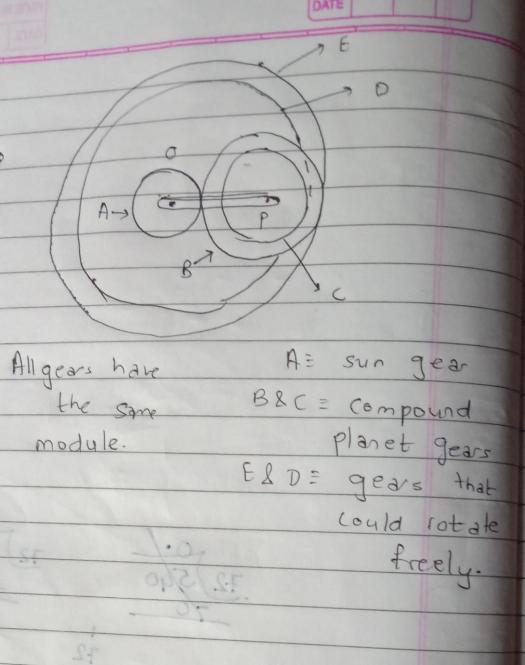 DATE
E
D
O
A→
P
B
C
All gears have
the same
module.
A≡ sun gear
B & C ≡ compound
planet gears
E & D ≡ gears that
could rotate
freely.